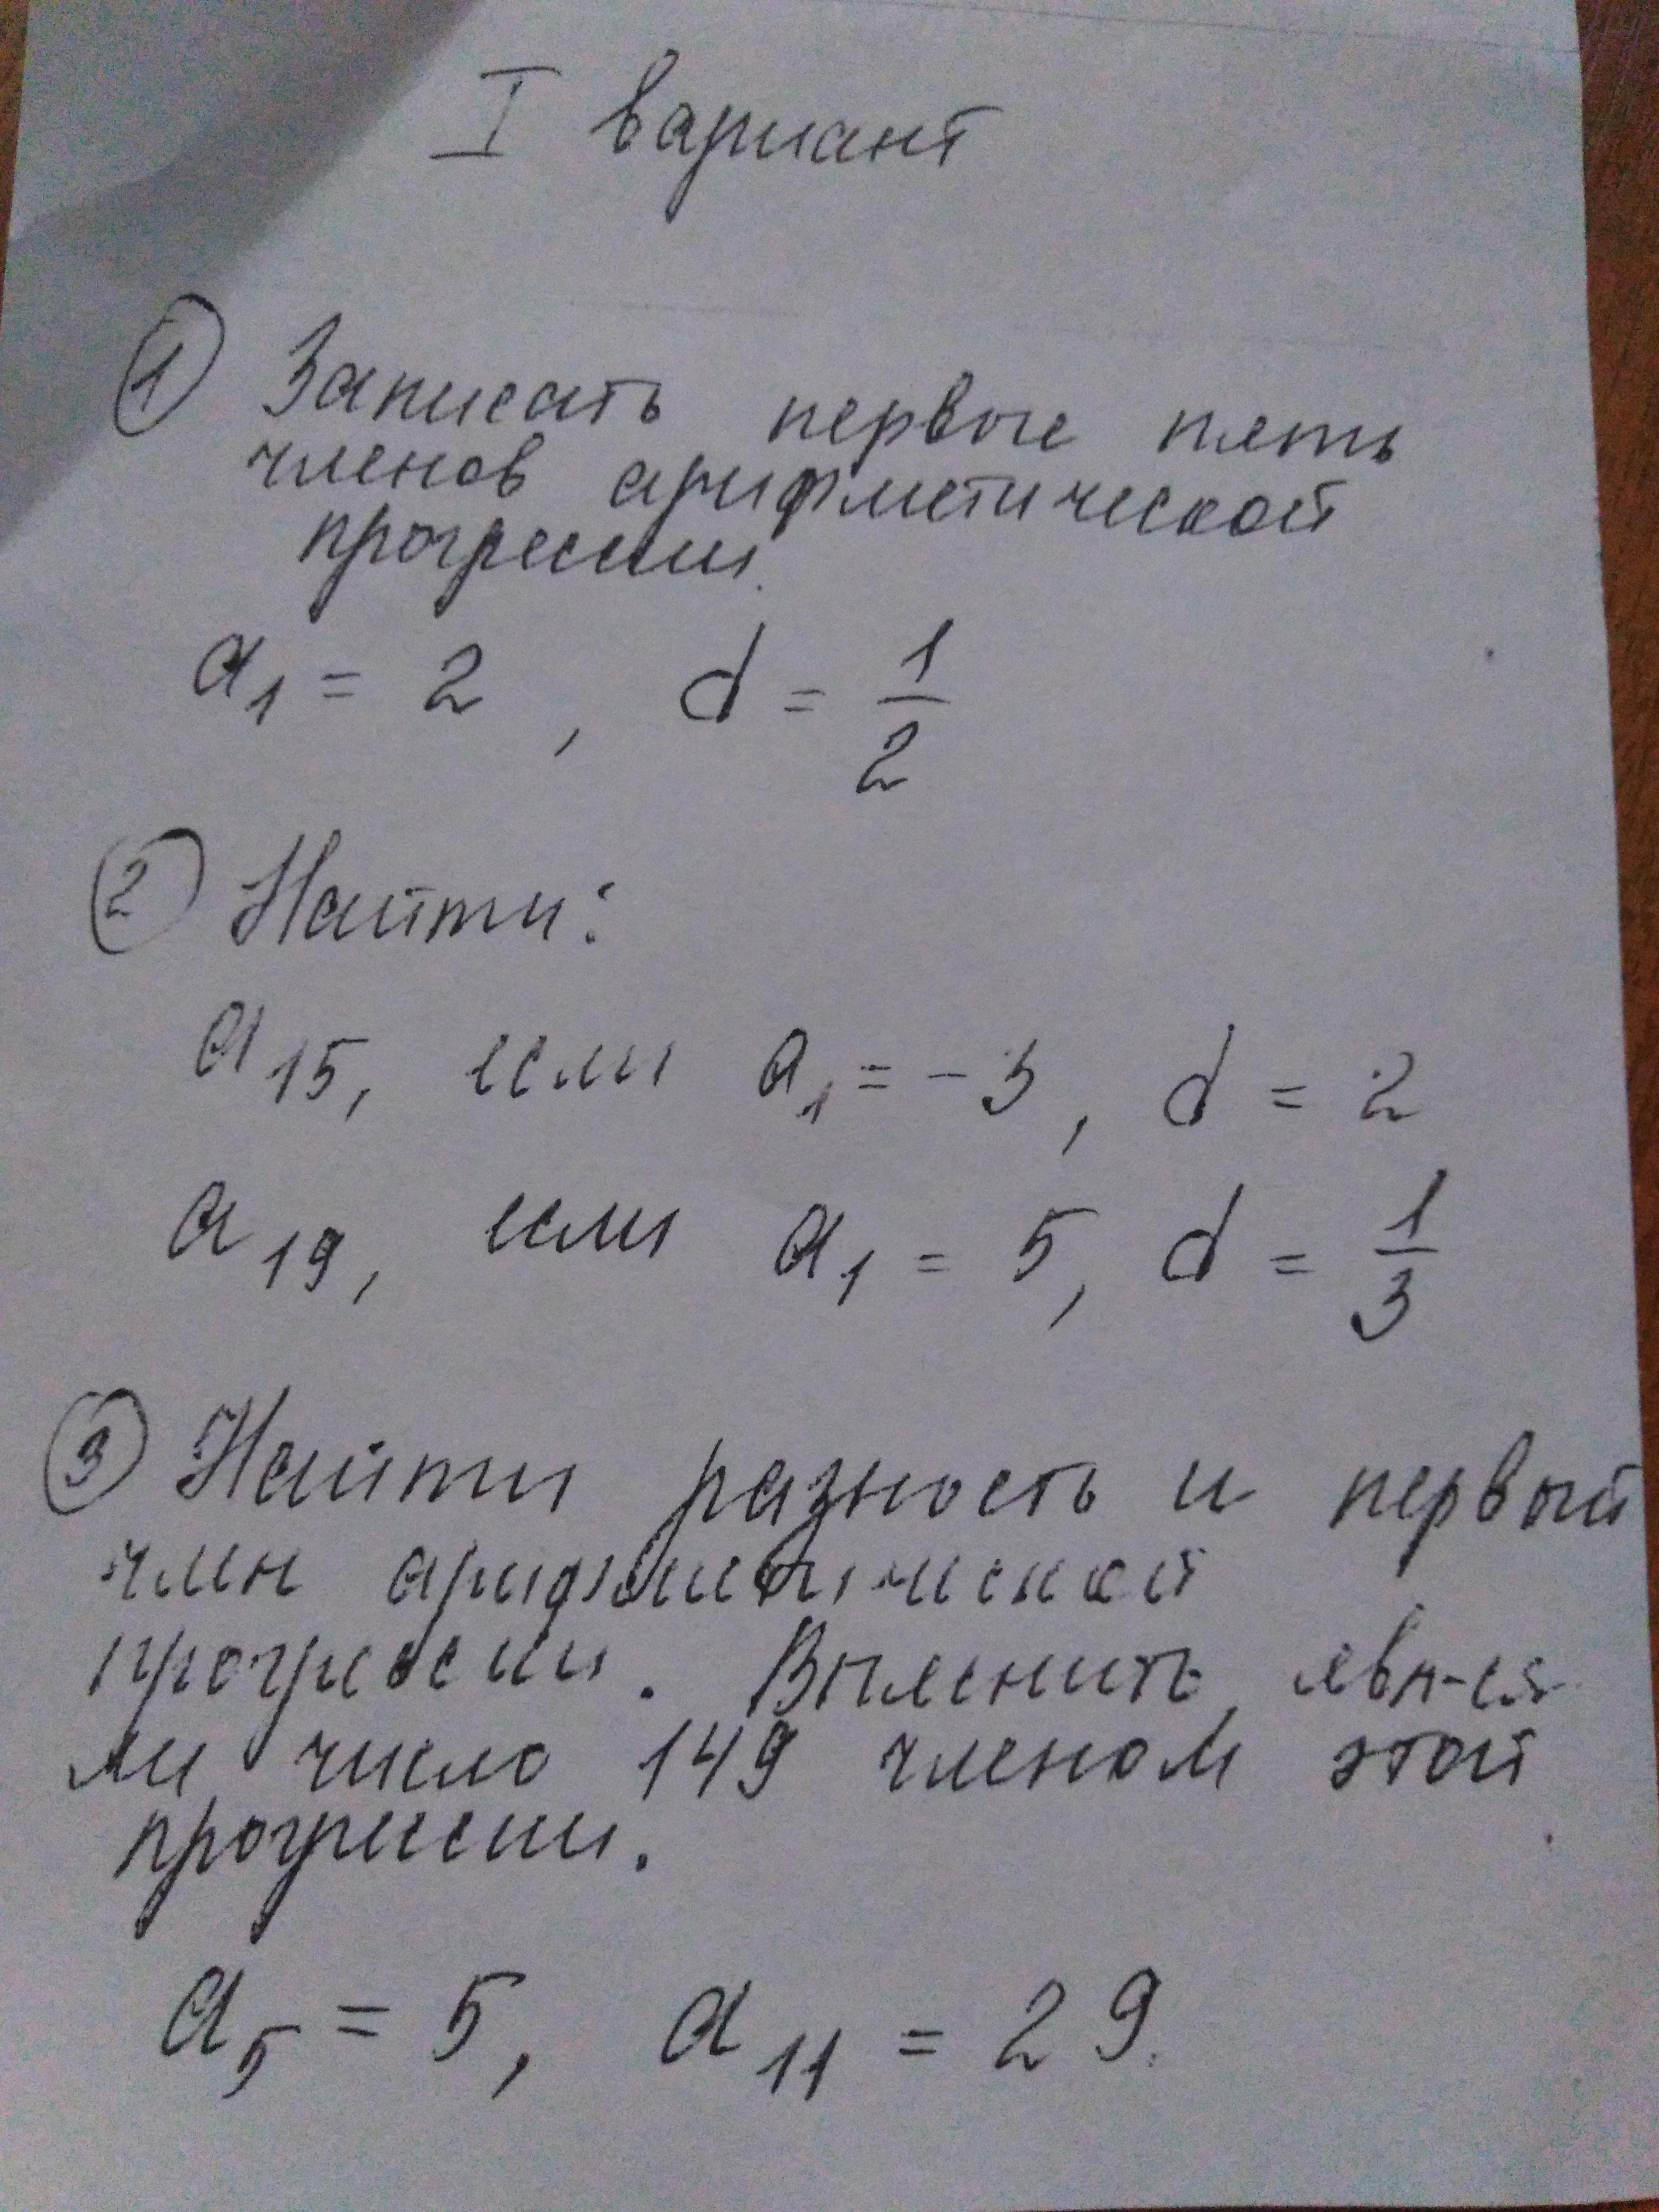 I вариант
① Записать первые пять
членов арифметической
прогрессии.
a₁ = 2, d = 1/2
② Найти:
a₁₅, если a₁ = -3, d = 2
a₁₉, если a₁ = 5, d = 1/3
③ Найти разность и первый
член арифметической
прогрессии. Выяснить, явл-ся
ли число 149 членом этой
прогрессии.
a₅ = 5, a₁₁ = 29.